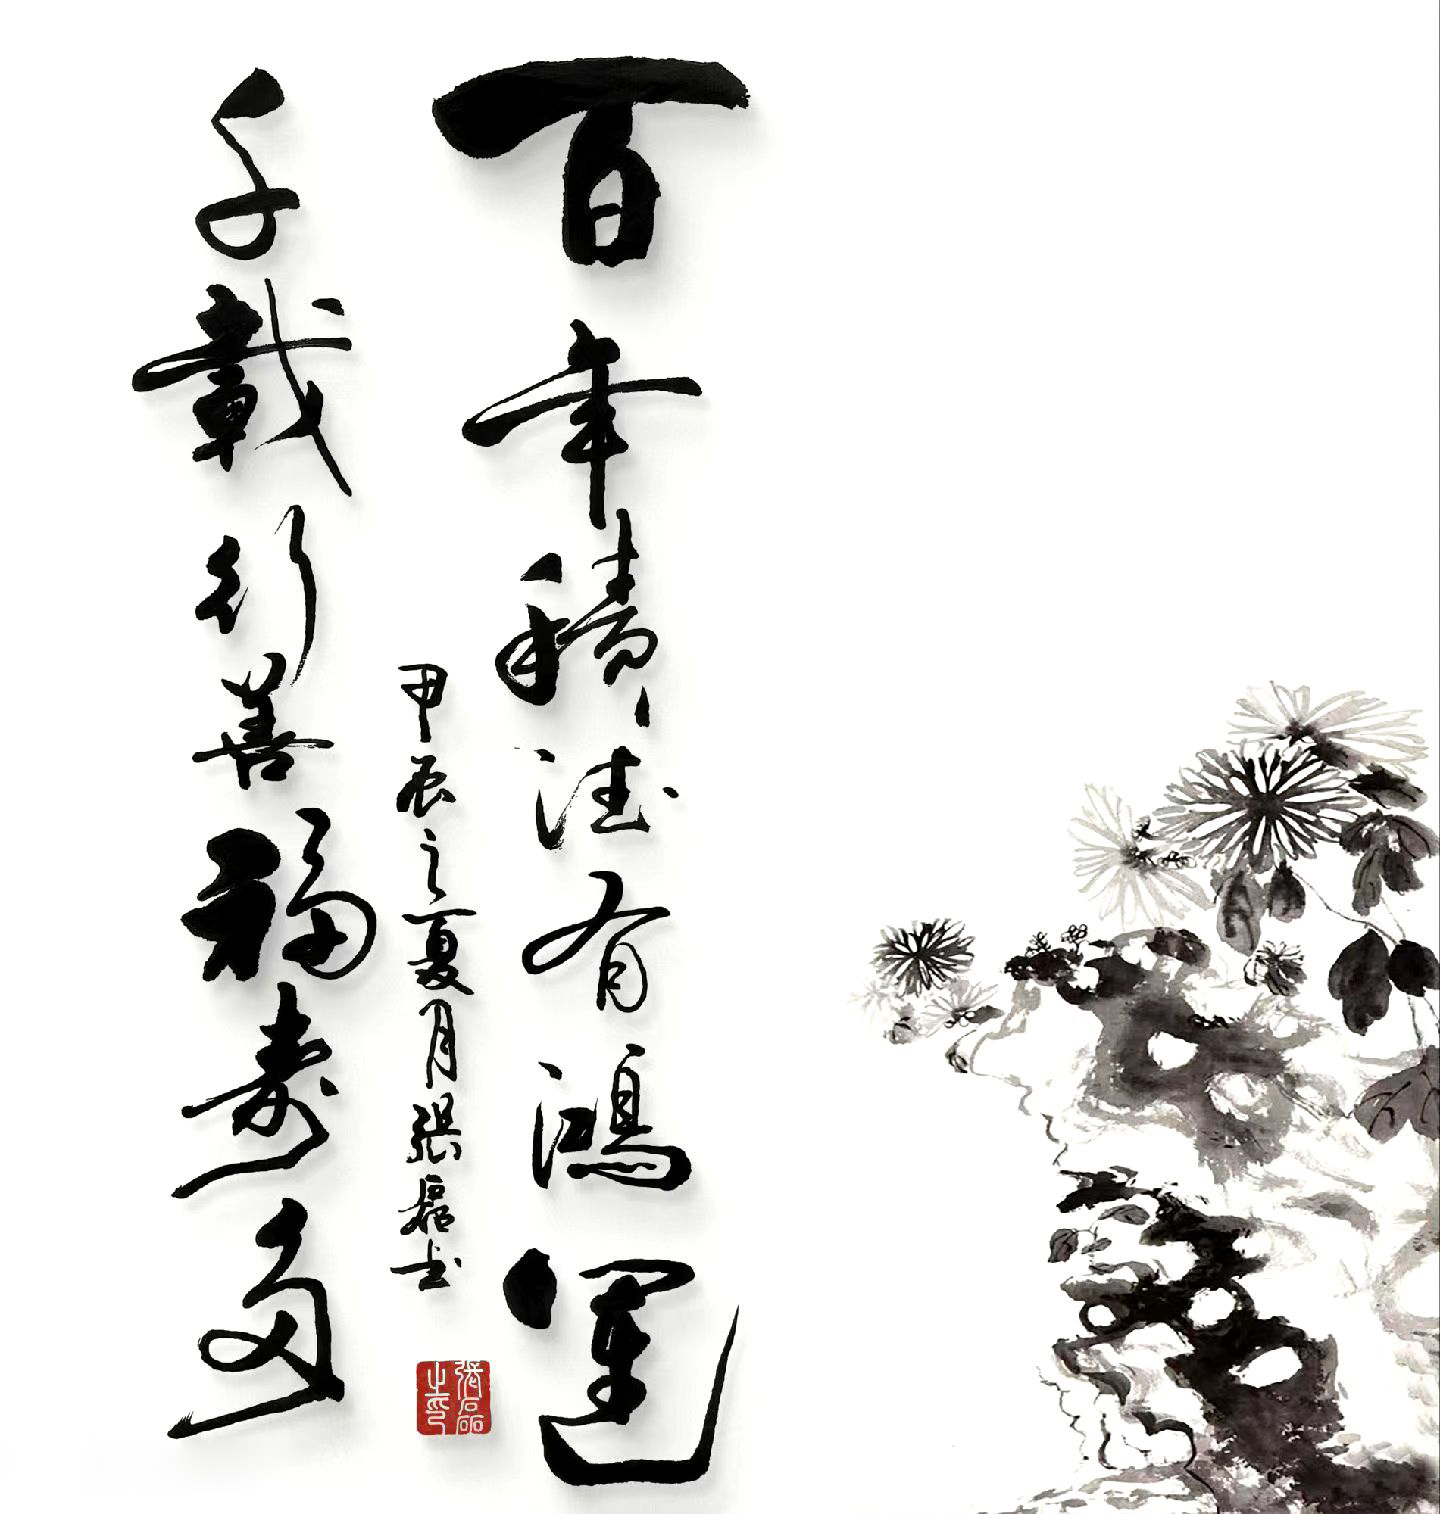 百年積德有鴻運
千載行善福壽多
甲辰之夏月張磊书
張磊之印